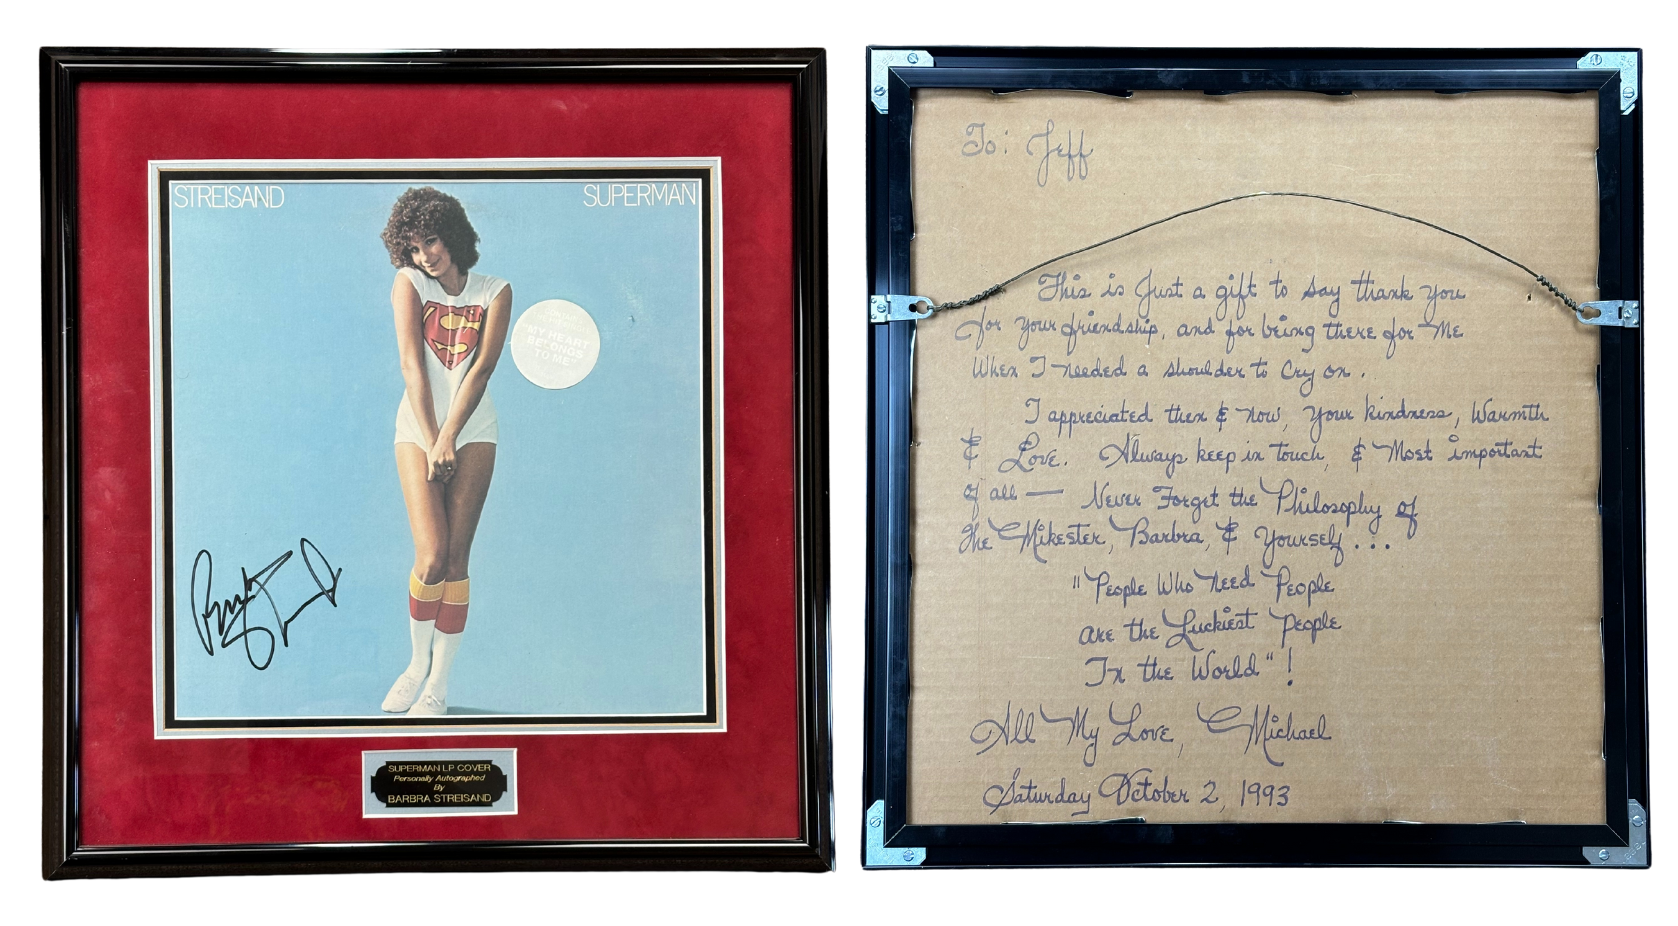 STREISAND
SUPERMAN
"MY HEART
BELONGS
TO ME"
Barbra Streisand
SUPERMAN LP COVER
Personally Autographed
By
BARBRA STREISAND
To: Jeff
This is Just a gift to say thank you
for your friendship, and for being there for Me
When I needed a shoulder to Cry on.
I appreciated then & now, your kindness, Warmth
& Love. Always keep in touch, & Most important
of all — Never Forget the Philosophy of
the Mikester, Barbra, & Yourself...
"People Who Need People
are the Luckiest People
In the World"!
All My Love, Michael
Saturday October 2, 1993